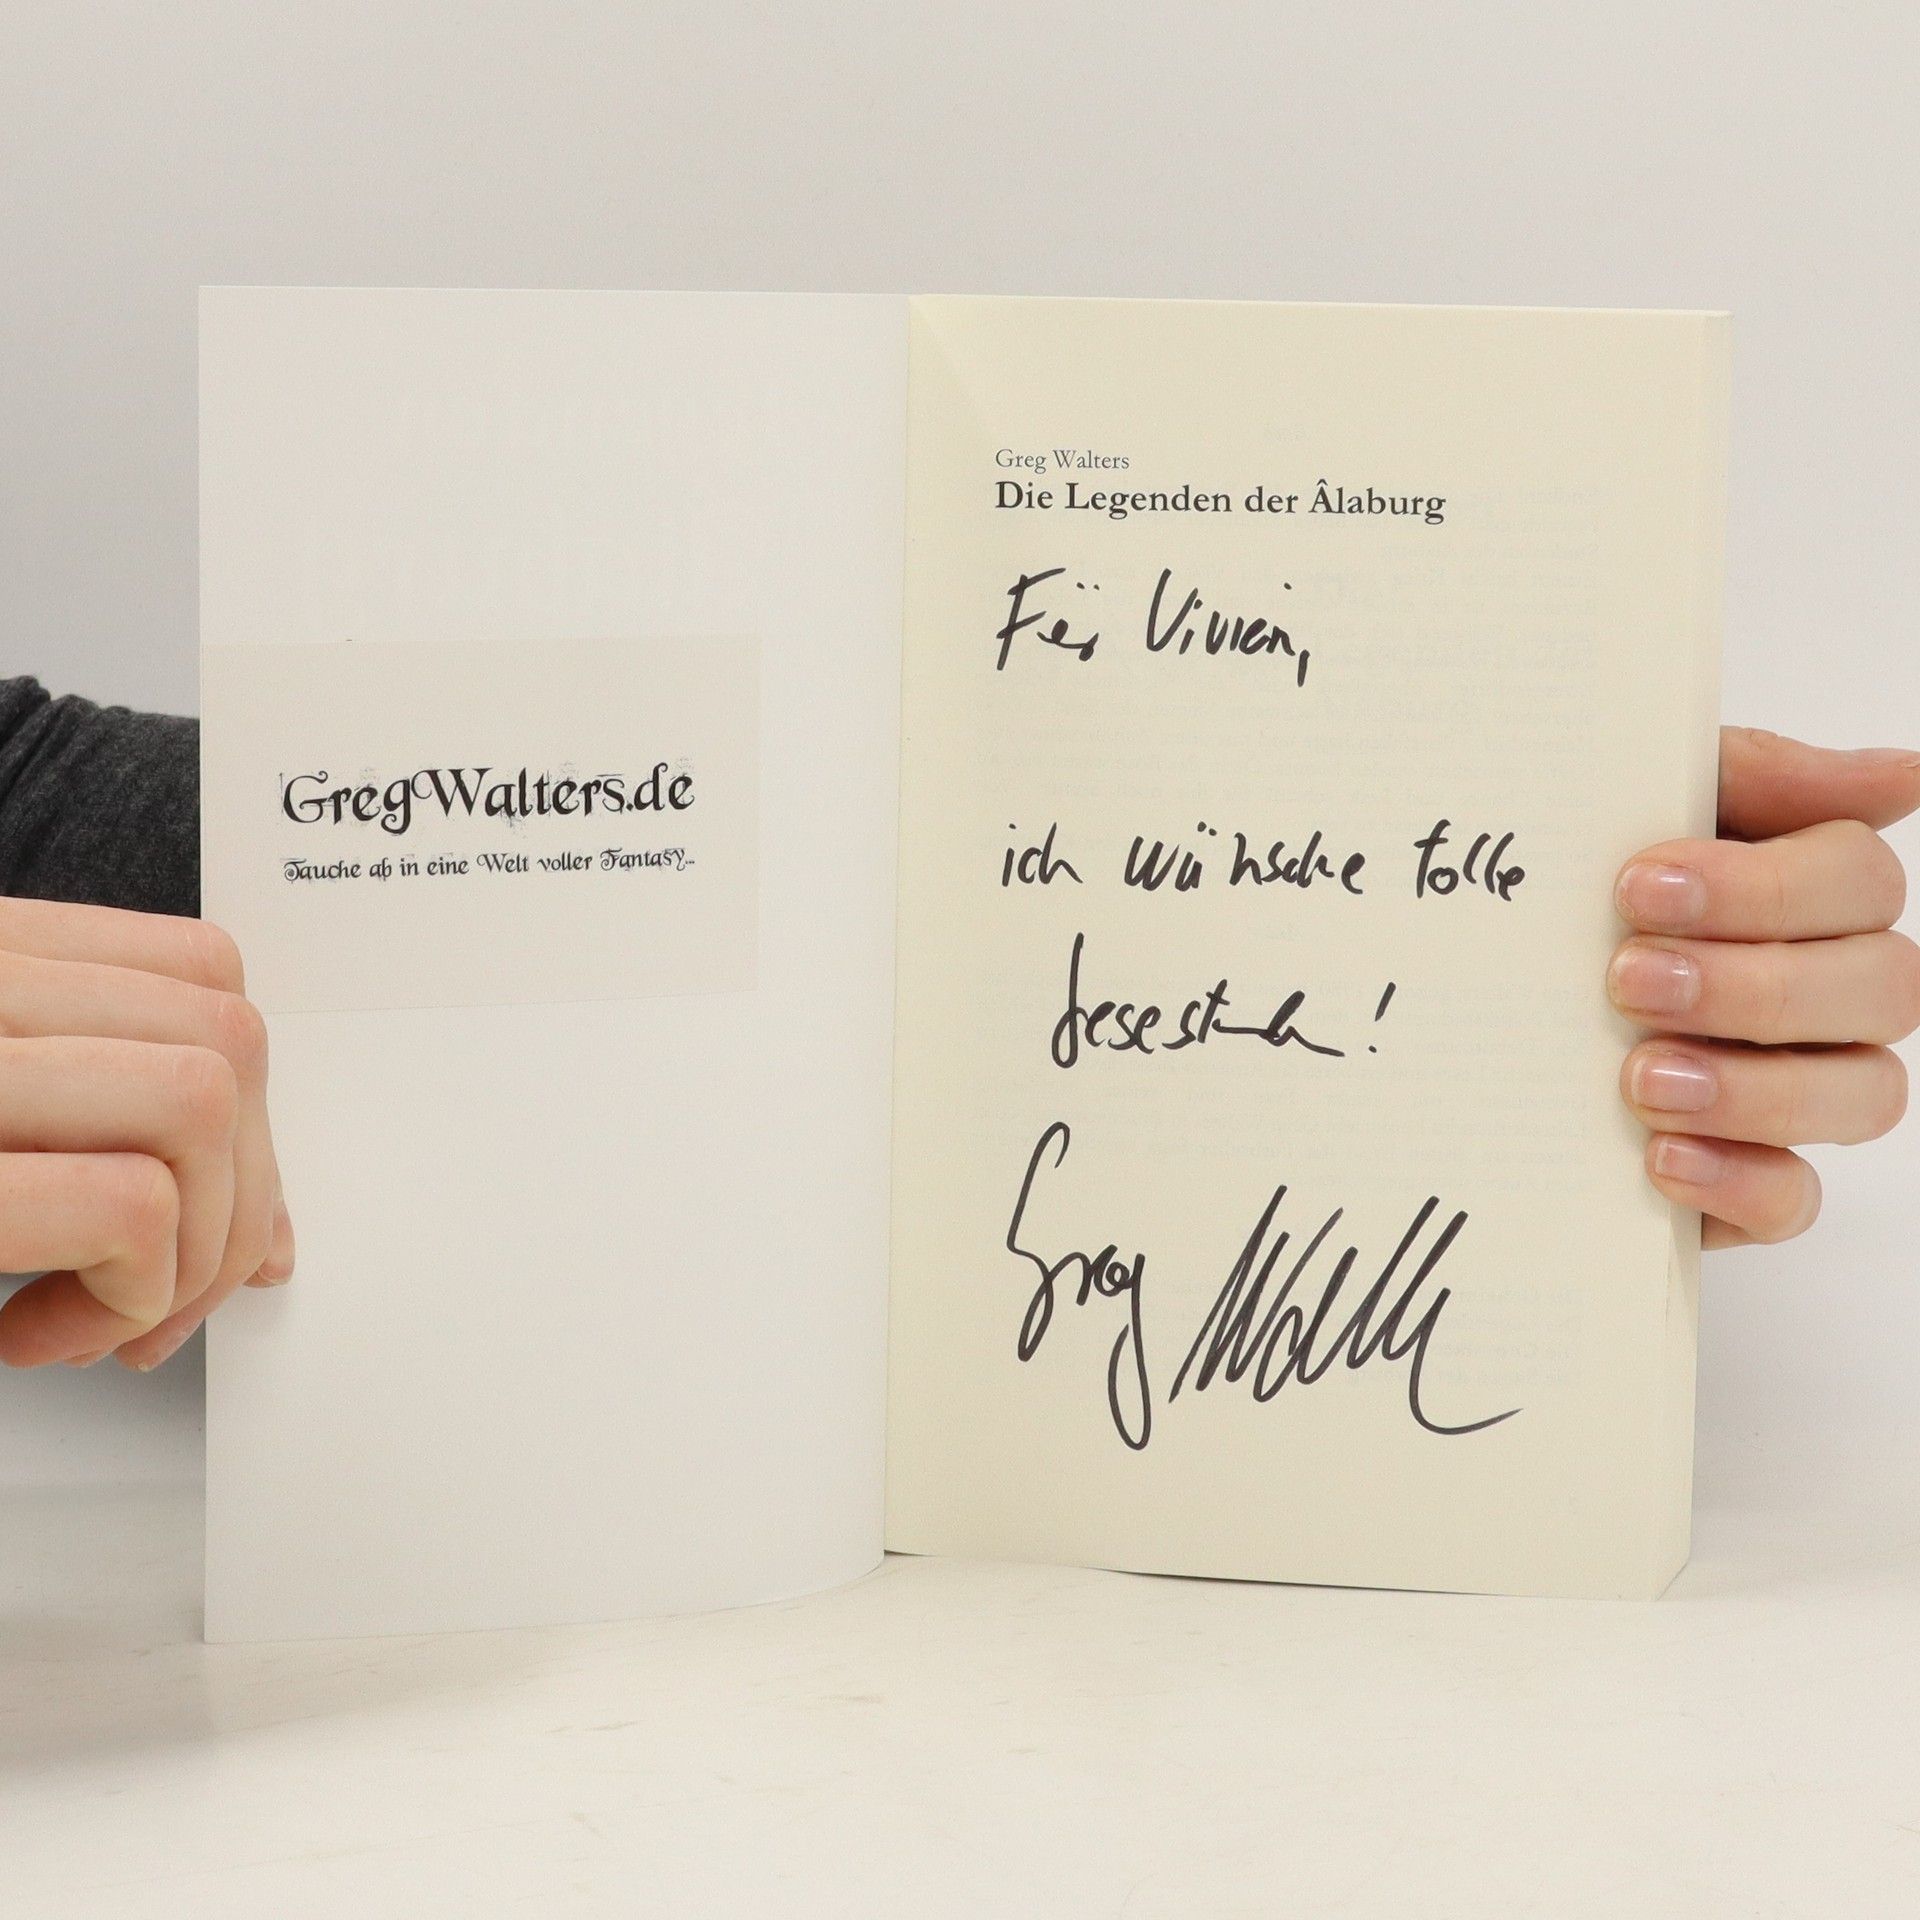 GregWalters.de
Tauche ab in eine Welt voller Fantasy...
Greg Walters
Die Legenden der Âlaburg
Für Vivien,
ich wünsche tolle
Lesestunden!
Greg Walters